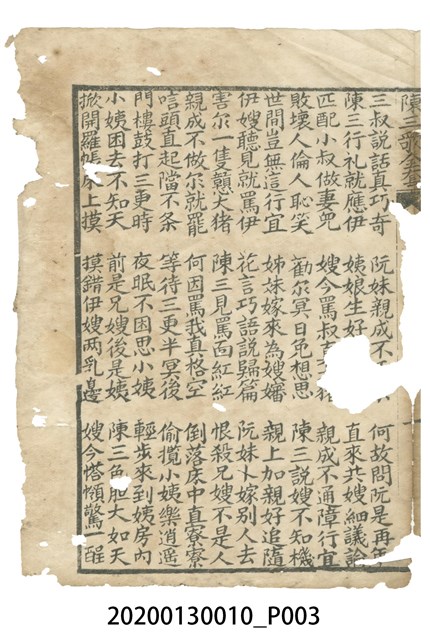 陳三歌全
三叔說話真巧奇 阮妹親成不 何故問阮是再年
陳三行礼就應伊 姨娘生好 直來共嫂細議論
匹配小叔做妻兜 嫂今罵叔 親成不通障行宜
敗壞人倫人恥笑 勸尔冥日免想思 陳三說嫂不知機
世間豈無這行宜 姊妹嫁來為嫂嬸 親上加親好追隨
伊嫂聽見就罵伊 花言巧語說歸篇 阮妹卜嫁別人去
害尔一隻頼大猪 陳三見罵面紅紅 恨殺兄嫂不是人
親成不做尔就罷 何因罵我真格空 倒落床中直寮寮
唁頭直起噹不条 等待三更半冥後 偷攬小姨樂逍遥
門樓鼓打三更時 夜眠不困思小姨 輕步來到姨房內
小姨困去不知天 前是兄嫂後是姨 陳三色胆大如天
掀開羅帳床上摸 摸錯伊嫂兩乳邊 嫂今慒懶驚一醒
20200130010_P003